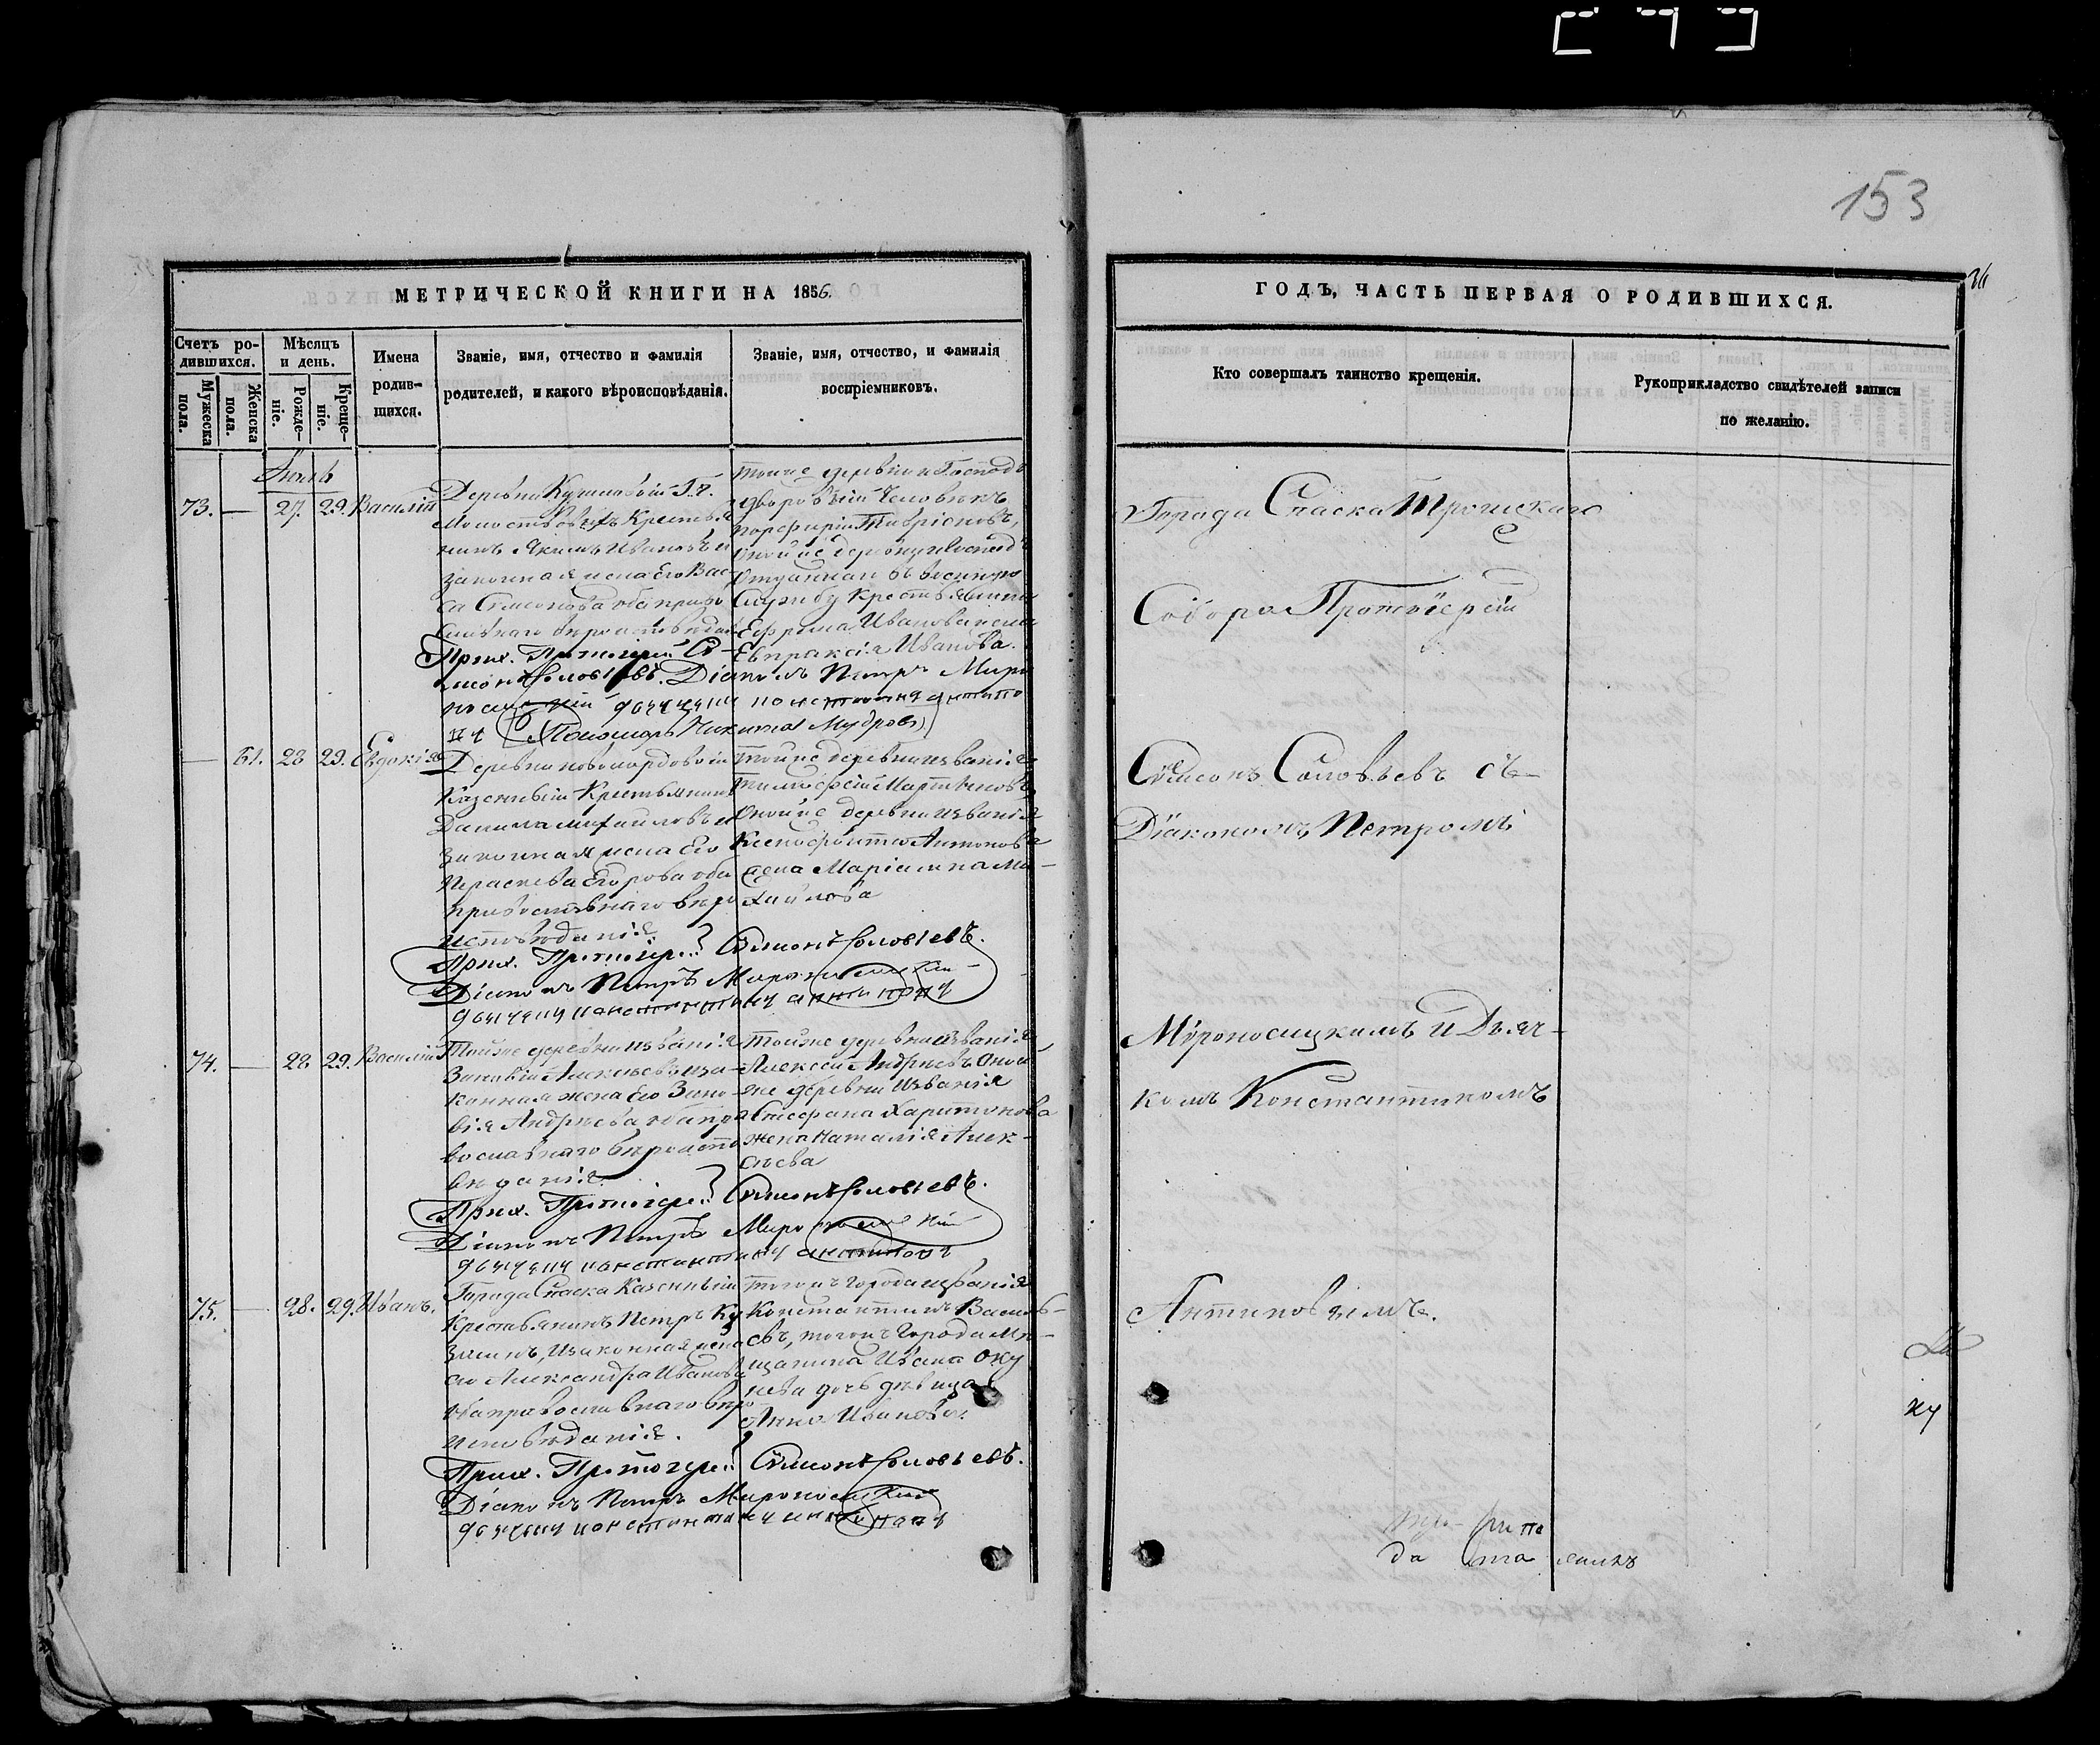 153
МЕТРИЧЕСКОЙ КНИГИ НА 1856.
Счетъ ро-
дившихся.
Мужеска
пола.
Женска
пола.
Мѣсяцъ
и день.
Рожде-
ніе.
Креще-
ніе.
Имена
родив-
шихся.
Званіе, имя, отчество и фамилія
родителей, и какого вѣроисповѣданія.
Званіе, имя, отчество, и фамилія
воспріемниковъ.
73. — 27. 29. Василій
Деревни
Крестья
нинъ Якимъ Ивановъ и
законная жена его Вас
са Симонова оба право
славнаго вѣроисповѣдан
тойже деревни Господ
дворовый Человѣкъ
порфирій
тойже деревни Господ
отданнаго въ военную
службу крестьянина
Ефрема Иванова жена
Евпраксія Иванова.
Прих. Протоіерей Си-
меонъ Соловьевъ. Діаконъ Петръ Миро
носицкій дьячекъ константинъ антипо
въ Пономарь Никита Мудровъ
— 61. 28 29. Евдокія
Деревни новомордовой
Казенный Крестьянинъ
Данила михайловъ и
законная жена его
Параскева Егорова оба
православнаго вѣро
исповѣданія.
тойже деревни и званія
тимофей Мартыновъ
оной же деревни и званія
Ксенофонта Антонова
жена Маріамна Ми-
хайлова
Прих. Протоіерей Симеонъ Соловьевъ.
Діаконъ Петръ Мироносицкій
дьячекъ константинъ антиповъ
74. — 28. 29. Василій
Тойже деревни и званія
Зиновій Алексѣевъ и за-
конная жена его Зино-
вія Андреева оба пра
вославнаго вѣроиспо
вѣданія.
тойже деревни и званія
Алексѣй Андреевъ оной
же деревни и званія
Стефана Харитонова
жена Наталія Алек-
сѣева
Прих. Протоіерей Симеонъ Соловьевъ.
Діаконъ Петръ Мироносицкій
дьячекъ константинъ антиповъ
75. — 28. 29. Иванъ.
Города Спаска Казенный
крестьянинъ Петръ Ку
зминъ, и законная жена
его Александра Иванова
оба православнаго вѣро
исповѣданія.
тогожъ города и званія
Константинъ Василь-
евъ, тогожъ города мѣ-
щанина Ивана Оку
нева дочь дѣвица
Анна Иванова.
Прих. Протоіерей Симеонъ Соловьевъ.
Діаконъ Петръ Мироносицкій
дьячекъ константинъ антиповъ
ГОДЪ, ЧАСТЬ ПЕРВАЯ О РОДИВШИХСЯ.
Кто совершалъ таинство крещенія.
Рукоприкладство свидѣтелей записи
по желанію.
Города Спаска Троицкаго
Собора Протоіерей
Симеонъ Соловьевъ съ
Діакономъ Петромъ
Мѵроносицкимъ и Дьяч-
комъ Константиномъ
Антиповымъ.